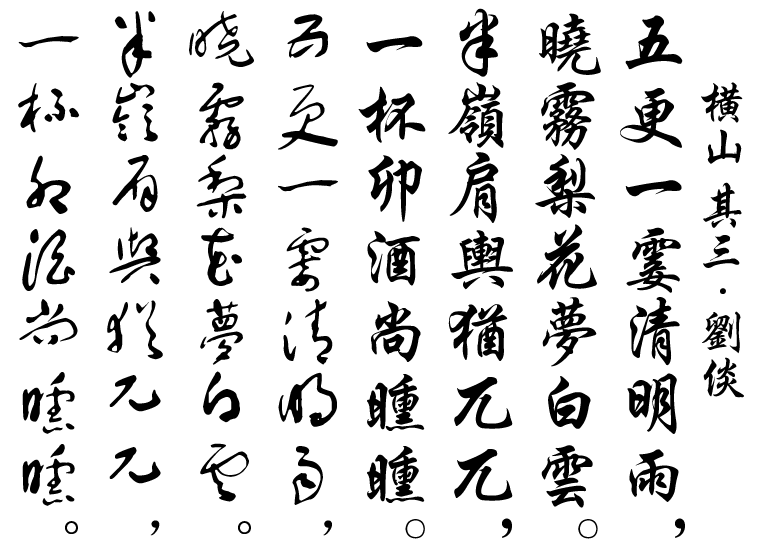 橫山 其三·劉倓
五更一霎清明雨,
曉霧梨花夢白雲。
半嶺肩輿猶兀兀,
一杯卯酒尚曛曛。
五更一霎清明雨,
曉霧梨花夢白雲。
半嶺肩輿猶兀兀,
一杯卯酒尚曛曛。